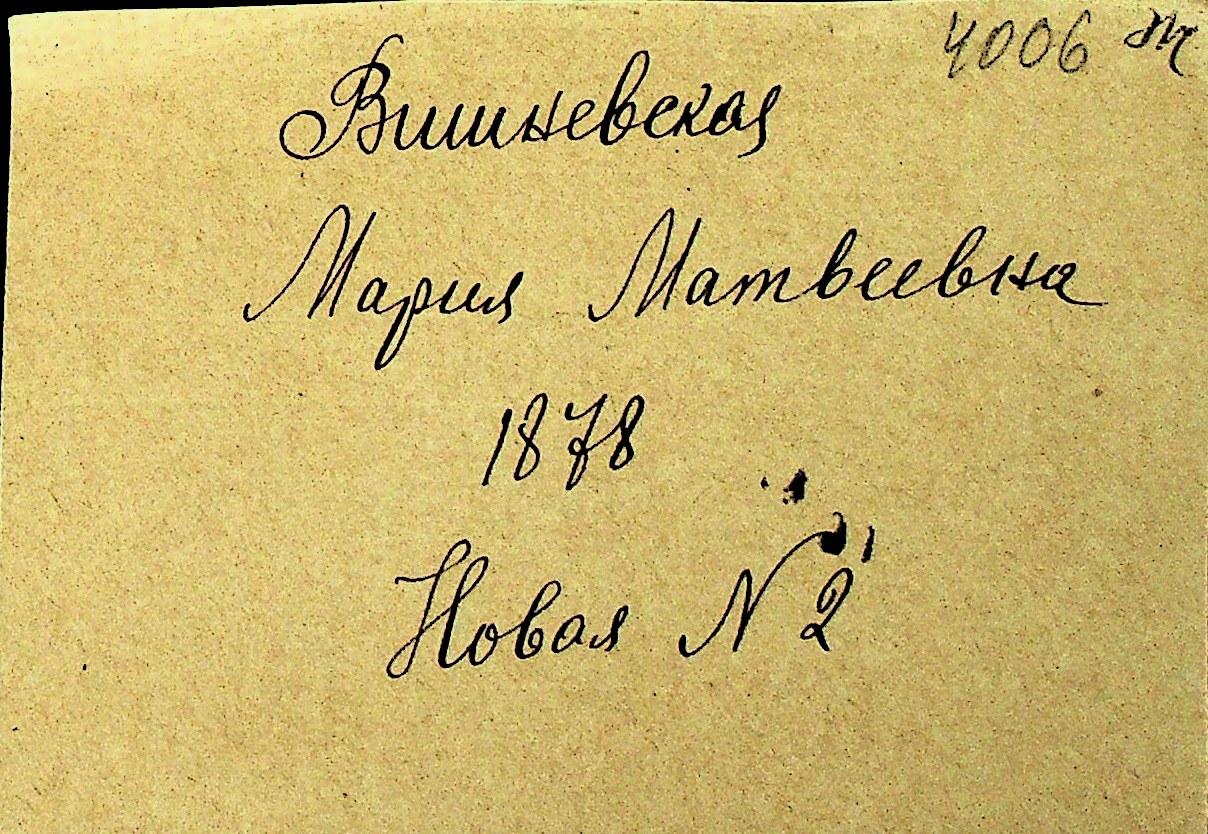 4006
Вишневская
Мария Матвеевна
1878
Новая N 2